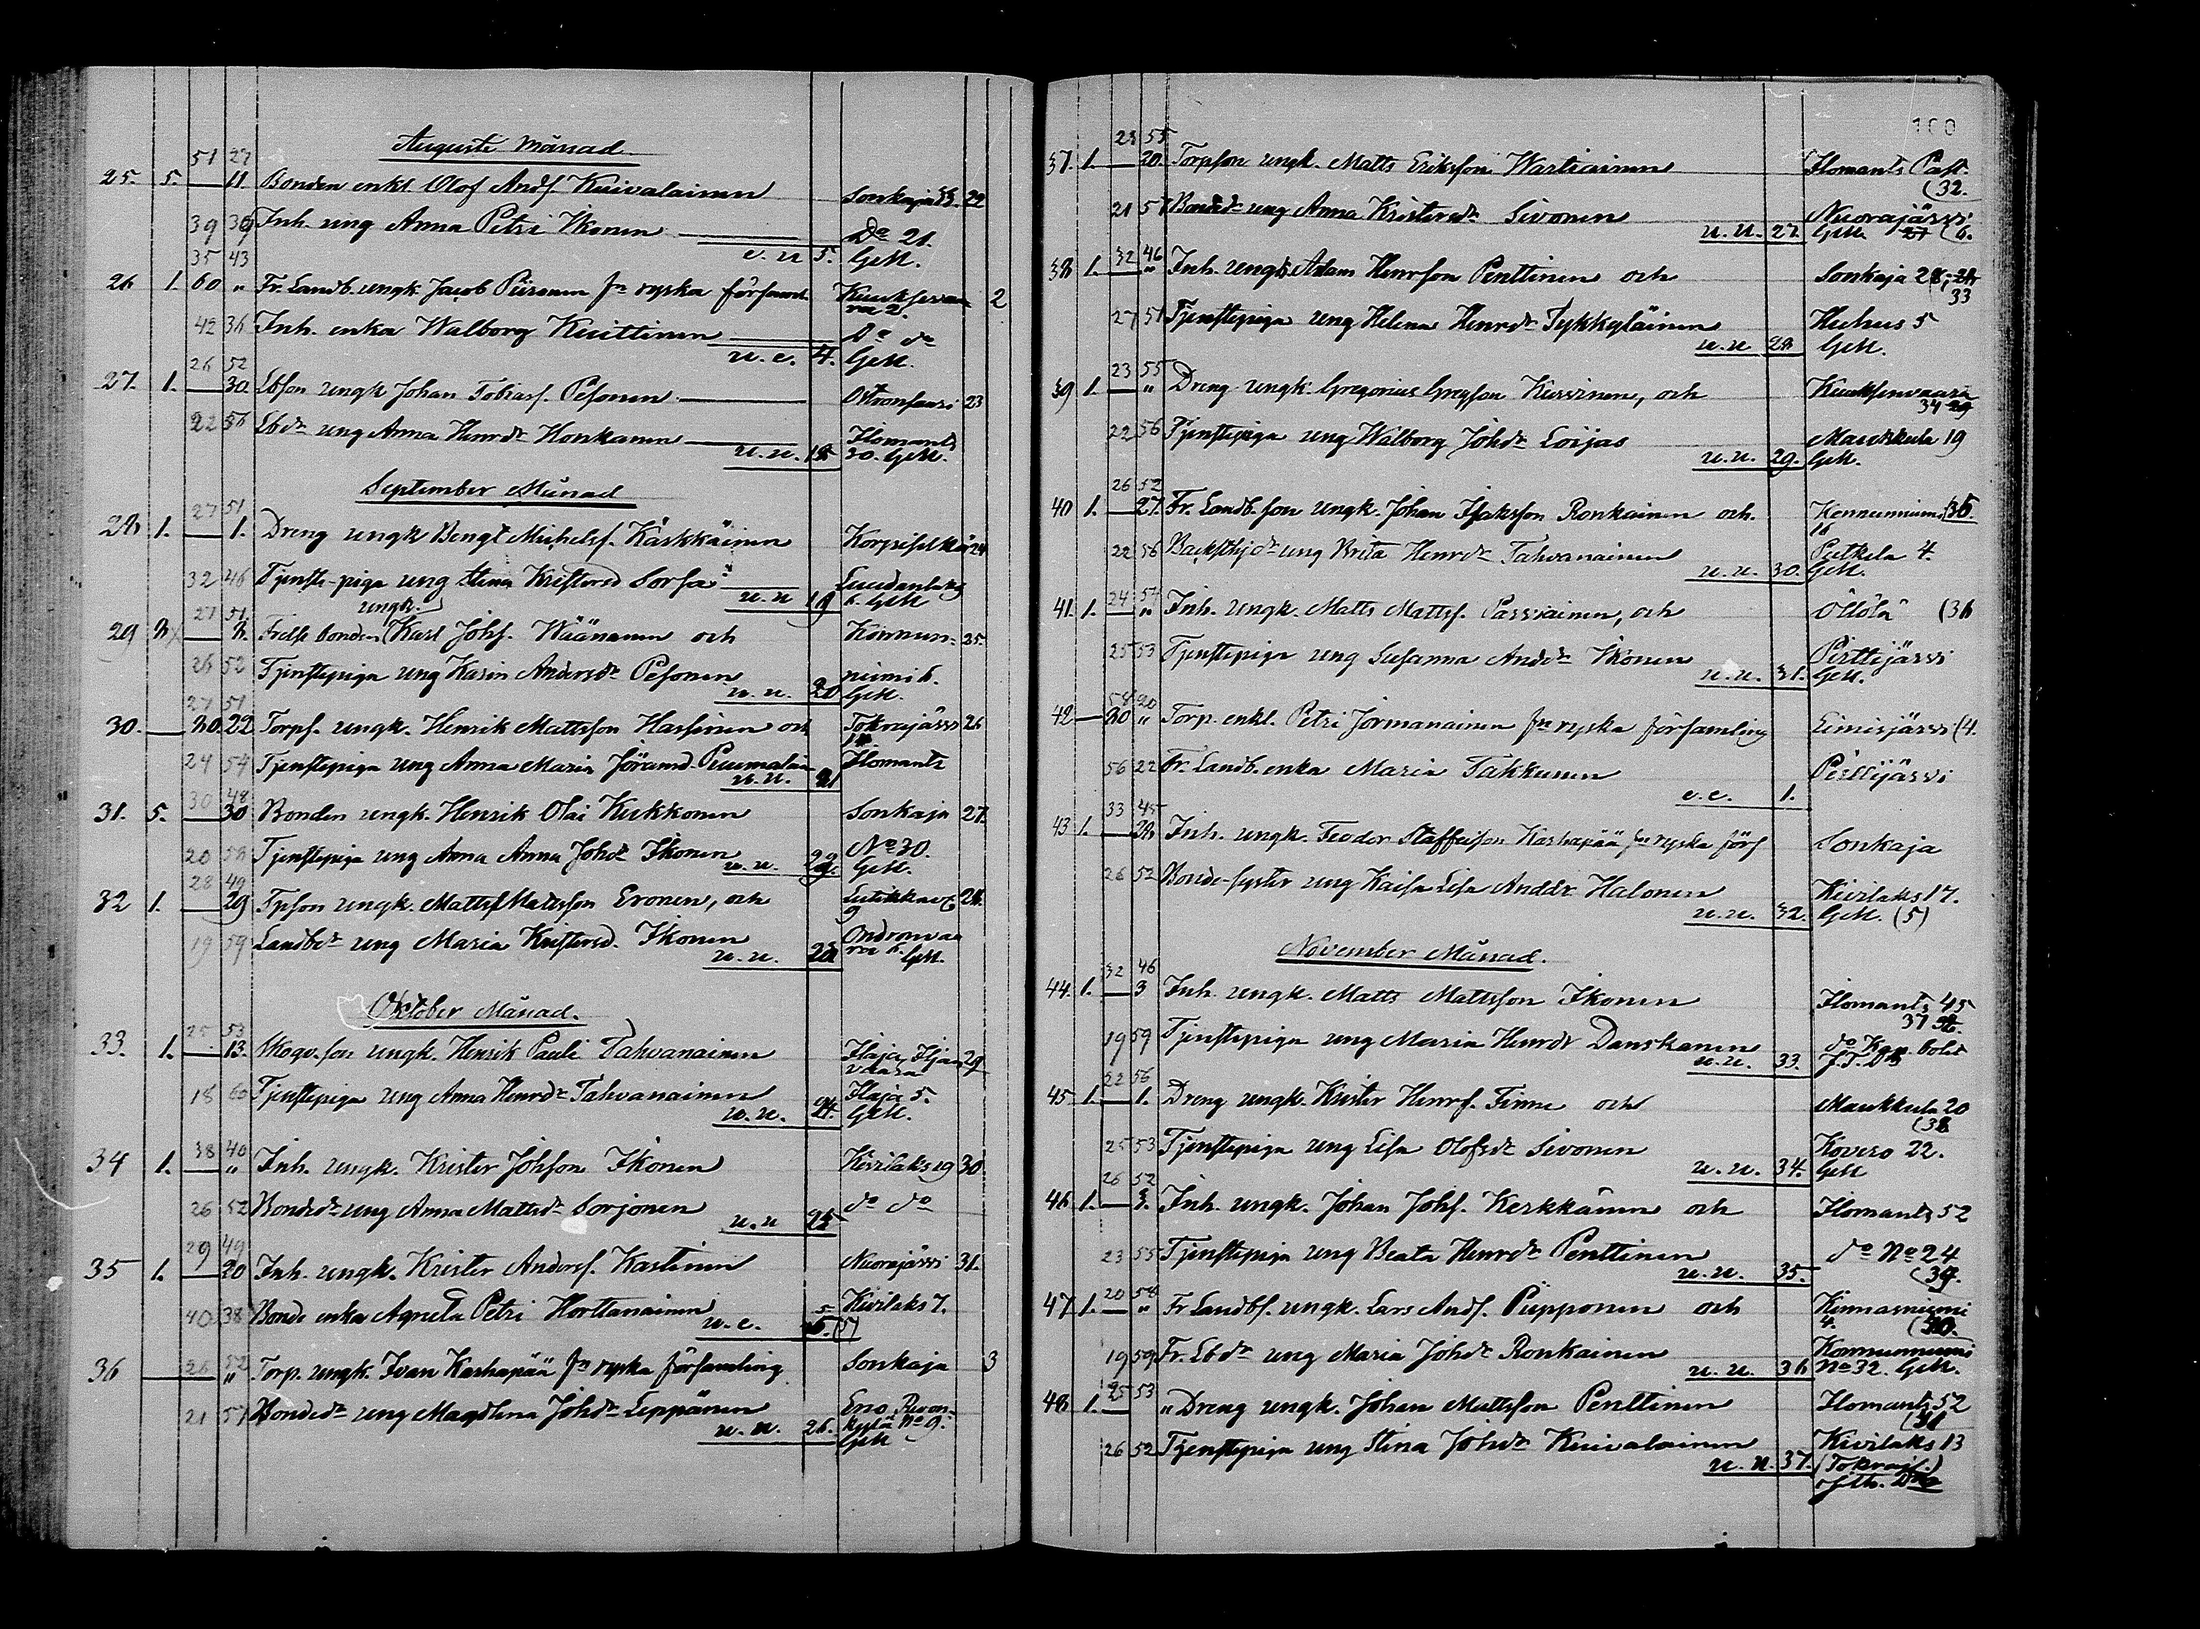 Augusti Månad
51 27
25. 5. — 11 Bonden enkl. Olof Andf Kuivalainen Sonkaja 33. 22
39 39 Inh. ung Anna Petri Ikonen — Do 21.
e. u 5. GeM.
35 43
26 1. 60 " Fr. Landb. ungk Jacob Piironen fn ryska församl. Kuuksenvaa 2
ra 2.
42 36 Inh. enka Walborg Kuittinen — Do do
u. e. 4. GeM.
26 52
27. 1. — 30. Lbson ungk Johan Tobiasf. Pesonen — Ostronsaari 23
22 56 Lbdr ung Anna Henrdr Honkanen — Ilomants
u. u. 18 30. GeM.
September Månad
27 51
28 1. — 1. Dreng ungk Bengt Michelsf. Kärkkäinen Korpiselkä 24
32 46 Tjenste-piga ung Stina Kristersd Sorsa —
u. u 19 k. GeM
27 51 ungk.
29 — Frälse bonden Karl Johf. Wäänänen och Konnun- 25.
26 52 Tjenstepiga ung Karin Andersdr Pesonen niemi 6.
u. u. 20 GeM.
27 51
30. — 22 Torpf. ungk. Henrik Mattsson Hassinen och Tokrajärvi 26
24 54 Tjenstepiga ung Anna Maria Jöransd. Puumalain Ilomants
u. u. 21
30 48
31. 5. — 30 Bonden ungk. Henrik Olai Kukkonen Sonkaja 27.
20 58 Tjenstepiga ung Anna Anna Johdr Ikonen No 30.
u. u. 22. GeM.
28 49
32 1. — 29 Tpson ungk. Matts Mattsson Eronen, och Lutikkav 28.
9
19 59 Landbdr ung Maria Kristersd. Ikonen Ondronvaa
u. u. 23 ra k. GeM.
Oktober Månad.
25. 53
33. 1. — 13. Skogv. son ungk. Henrik Pauli Tahvanainen Ilaja, Iljan 29
vaara
18 60 Tjenstepiga ung Anna Henrdr Tahvanainen Ilaja 5.
u. u. 24. GeM.
38 40
34 1. — " Inh. ungk. Krister Johsson Ikonen Kivilaks 19 30.
26 52 Bondedr ung Anna Mattsdr Sorjonen do do
u. u 25
29 49
35 1. — 20 Inh. ungk. Krister Andersf. Kastinen Nuorajärvi 31.
40 38 Bonde enka Agneta Petri Horttanainen 5. Kivilaks 7.
u. e. (5)
26 52
36 — " Torp. ungk. Ivan Karhapää fn ryska församling Sonkaja 3
21 57 Bondedr ung Magdlena Johdr Leppänen Eno, Revon-
u. u. 26. kylä No 9.
GeM
100
23 55
37. 1. — 20. Torpson ungk. Matts Eriksson Wartiainen Ilomants Past.
(32.
21 57 Bondedr ung Anna Kristersdr Sivonen Nuorajärvi
u. u. 27. GeM. 27 (6.
32 46
38 1. — " Inh. ungk. Adam Henrsson Penttinen och Sonkaja 28,
33
27 51 Tjenstepiga ung Helena Henrdr Tykkyläinen Huhus 5
u. u 28 GeM.
23 55
39 1. — " Dreng ungk. Gregorius Gregsson Kurvinen, och Kuuksenvaara
34 29
22 56 Tjenstepiga ung Walborg Johdr Loijas Maukkula 19
u. u. 29. GeM.
26 52
40 1. — 27. Fr. Landb. son ungk. Johan Isaksson Ronkainen och. Konnunniemi (35.
16
22 56 Backsthjdr ung Brita Henrdr Tahvanainen Putkela 4.
u. u. 30. GeM.
24 54
41. 1. — " Inh. ungk. Matts Mattsf. Parviainen, och Öllölä (36
25 53 Tjenstepiga ung Susanna Anddr Ikonen Perttijärvi
u. u. 31. GeM.
58 20
42 — 30 " Torp. enkl. Petri Jormanainen fn ryska församling Eimisjärvi (4.
56 22 Fr. Landb. enka Maria Takkunen Perttijärvi
e. e. 1.
33 45
43 1. — Inh. ungk. Feodor Staffeison Karhapää fn ryska förs Sonkaja
26 52 Bonde-syster ung Kaisa Lisa Anddr Halonen Kivilaks 17.
u. u. 32. GeM. (5)
November Månad.
32 46
44. 1. — 3 Inh. ungk. Matts Mattsson Ikonen Ilomants 45
37
19 59 Tjenstepiga ung Maria Henrdr Danskanen do Kap. bolet
u. u. 33.
22 56
45 1. — 1. Dreng ungk. Krister Henrf. Timme och Maukkula 20
(38
25 53 Tjenstepiga ung Lisa Olofsdr Sivonen Kovero 22.
u. u. 34. GeM
26 52
46 1. — Inh. ungk. Johan Johf. Kerkkänen och Ilomants 52
23 55 Tjenstepiga ung Beata Henrdr Penttinen do No 24
u. u. 35. (39.
20 58
47 1. — " Fr Landbf. ungk. Lars Andf. Piipponen och Kinnasniemi
4.
19 59 Fr. Lbdr ung Maria Johdr Ronkainen Konnunniemi
u. u. 36 No 32. GeM.
25 53
48 1. — " Dreng ungk. Johan Mattsson Penttinen Ilomants 52
26 52 Tjenstepiga ung Stina Johdr Kuivalainen Kivilaks 13
u. u. 37. (Tokraj.)